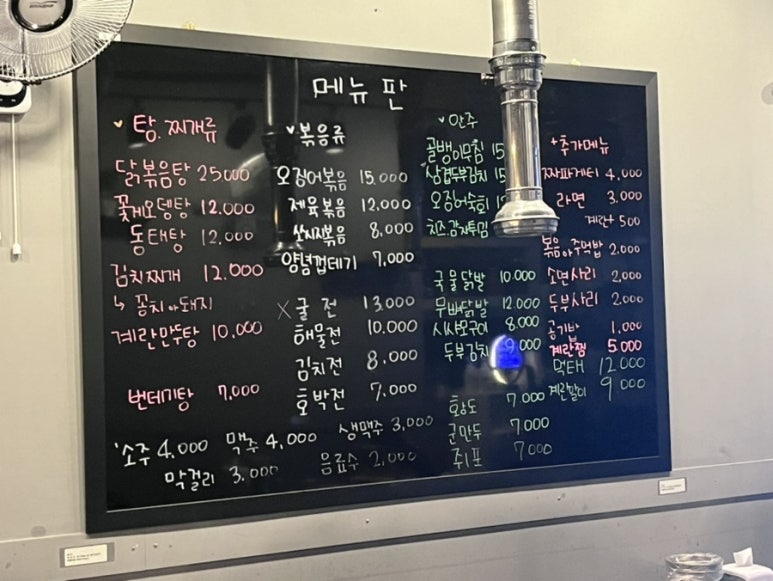 메뉴 판
탕. 찌개류
닭볶음탕 25.000
꽃게오뎅탕 12.000
동태탕 12.000
김치찌개 12.000
↳ 꽁치 or 돼지
계란만두탕 10,000
번데기탕 7,000
볶음류
오징어볶음 15.000
제육볶음 12,000
쏘시지볶음 8,000
양념껍데기 7,000
X 굴전 13.000
해물전 10.000
김치전 8,000
호박전 7.000
안주
골뱅이무침 15
삼겹두부김치 15
오징어숙회
치즈.감자튀김
국물닭발 10.000
무뼈닭발 12.000
시사모구이 8.000
두부김치 9,000
황도 7.000
군만두 7,000
쥐포 7000
+추가메뉴
짜파게티 4,000
라면 3.000
계란+500
볶음 or 주먹밥 2,000
소면사리 2,000
두부사리 2,000
공기밥 1,000
계란찜 5.000
먹태 12.000
계란말이 9.000
소주 4.000 맥주 4,000 생맥주 3,000
막걸리 3.000 음료수 2,000